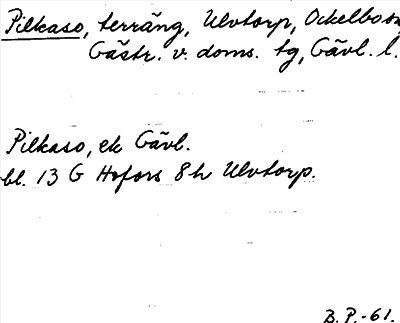 Pilkaso, terräng, Ulvtorp, Ockelbo sn,
Gästr. v. doms. tg, Gävl. l.
Pilkaso, ek Gävl.
bl. 13 G Hofors 8h Ulvtorp.
B.P.-61.